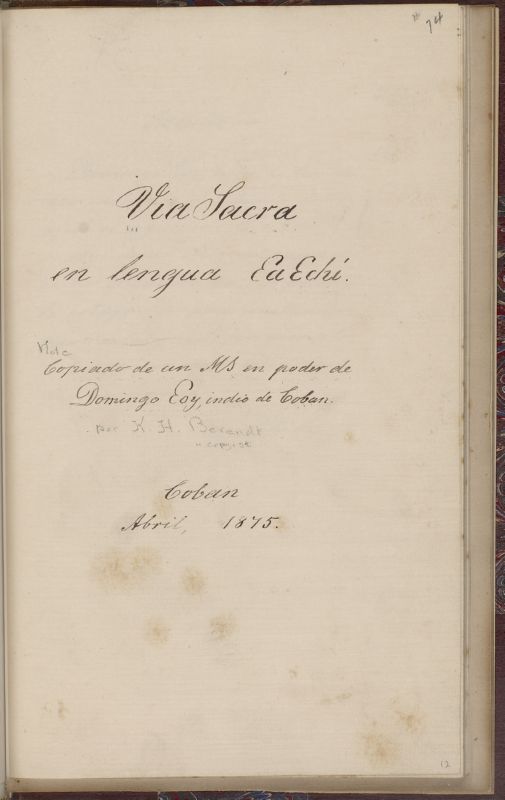 * 74
Via Sacra
en lengua EaEchi.
Note
Copiado de un MS en poder de
Domingo Eoy, indio de Coban.
por K. H. Berendt
" copyist
Coban
Abril, 1875.
12